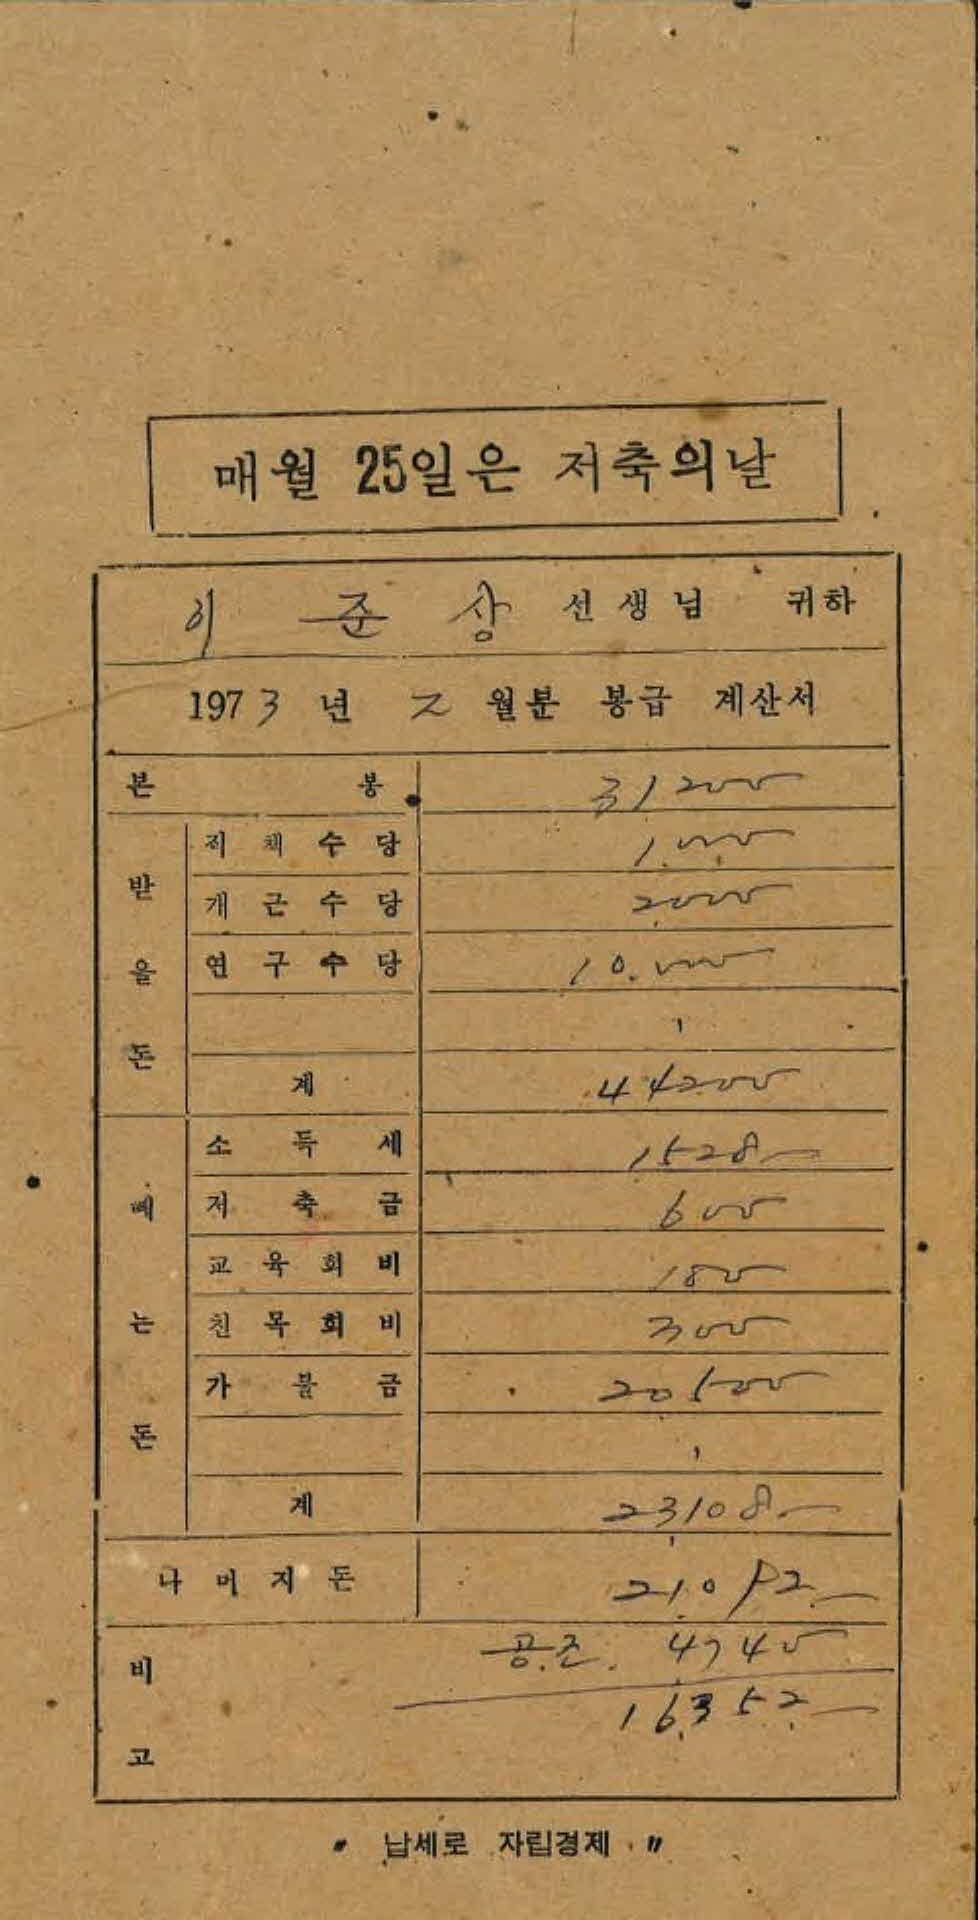 매월 25일은 저축의날
이 준 상 선생님 귀하
1973 년 2 월분 봉급 계산서
본 봉 31200
받을돈
직책수당 1,000
개근수당 2000
연구수당 10,000
계 44200
떼는돈
소득세 1528
저축금 600
교육회비 180
친목회비 300
가불금 20500
계 23108
나머지돈 21,092
비고
공조. 4740
16352
" 납세로 자립경제 "